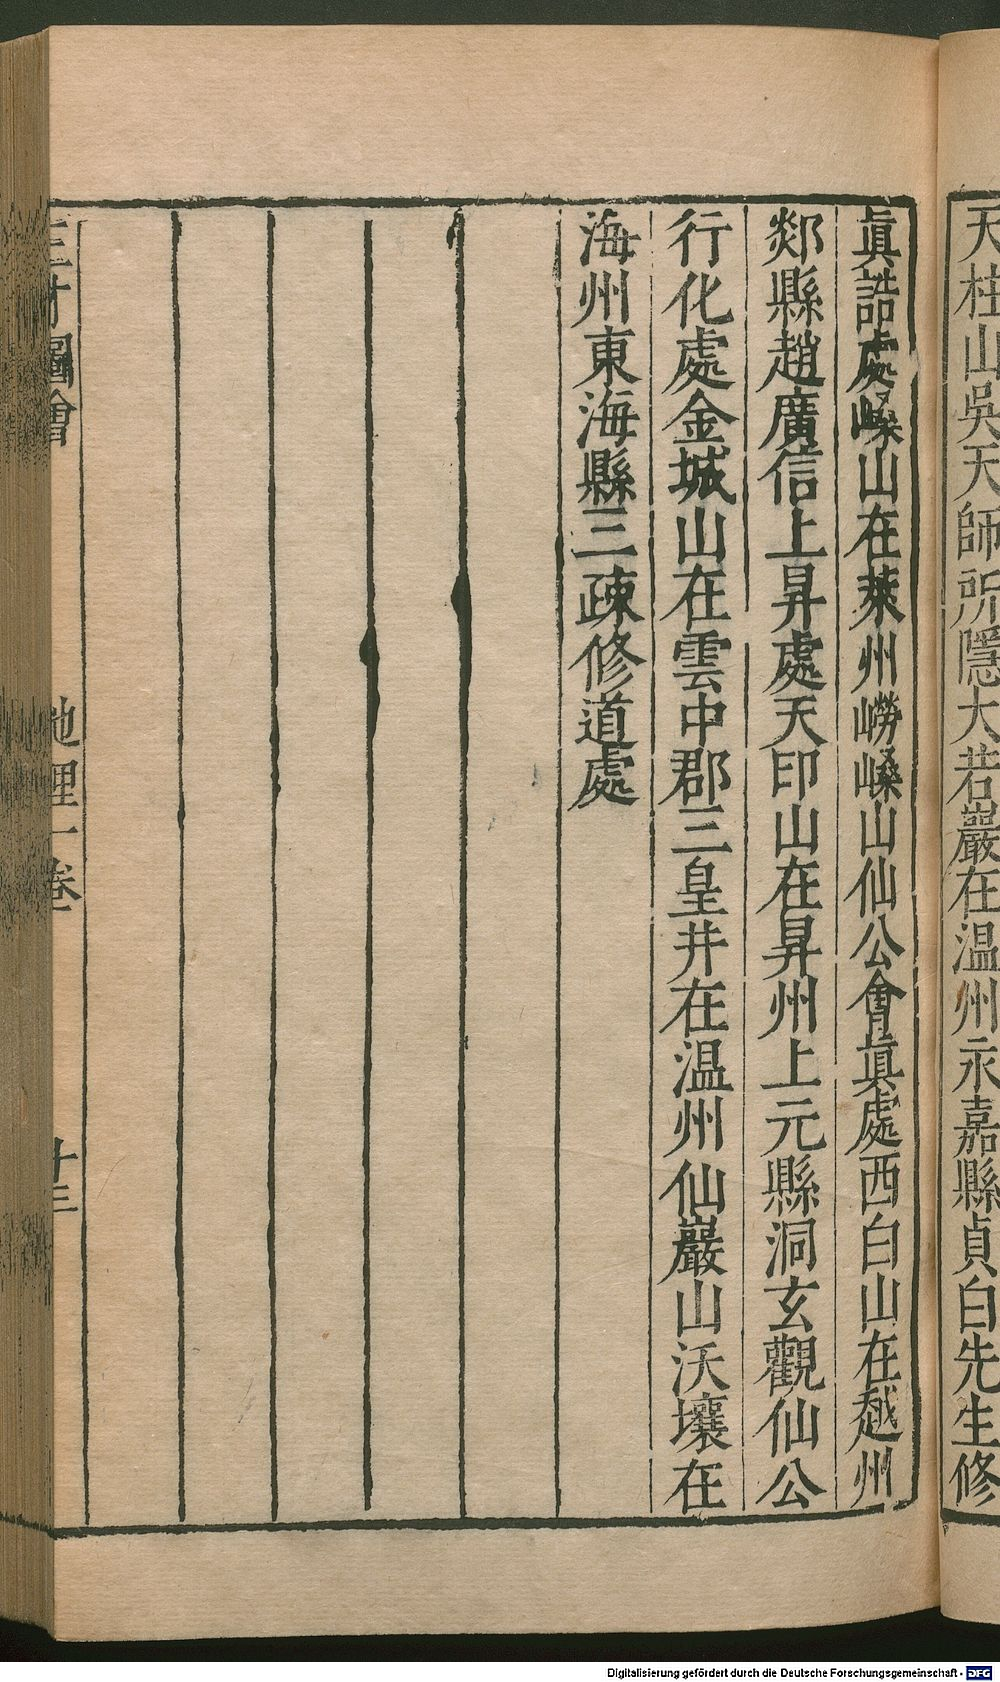 天柱山吳天師所隱大若巖在温州永嘉縣貞白先生修
眞誥處㠎山在萊州嶗㠎山仙公會眞處西白山在越州
剡縣趙廣信上昇處天印山在昇州上元縣洞玄觀仙公
行化處金城山在雲中郡三皇井在温州仙巖山沃壤在
海州東海縣三疎修道處
三才圖會 地理一卷 十三
Digitalisierung gefördert durch die Deutsche Forschungsgemeinschaft - DFG